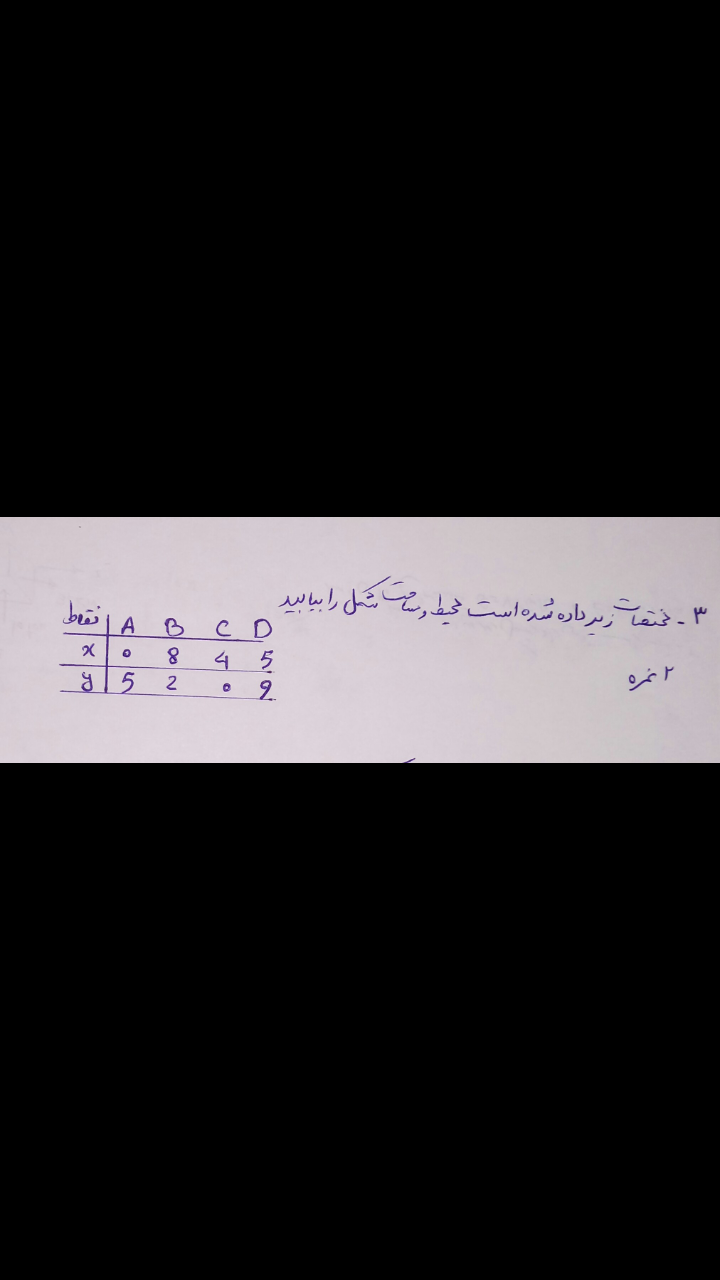 ۳- مختصات زیر داده شده است محیط و مساحت شکل را بیابید
۲ نمره
نقاط A B C D
x 0 8 4 5
y 5 2 0 9